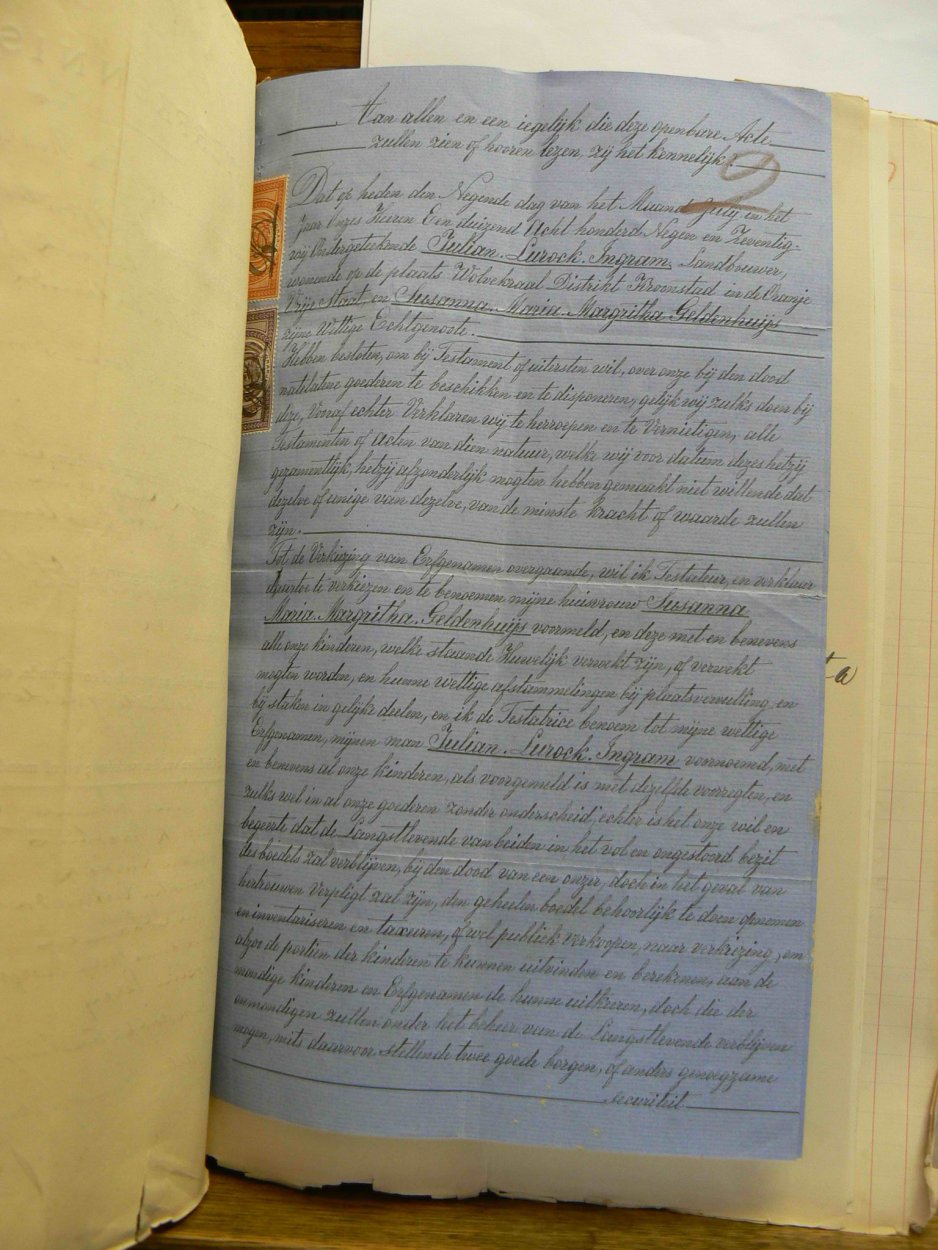 Aan allen en een iegelijk die deze openbare Acte
zullen zien of hooren lezen, zij het kennelijk.
2
Dat op heden den Negende dag van het Maand July in het
Jaar Onzes Heeren Een duizend Acht honderd Negen en Zeventig
wij Ondergeteekende Julian Lurock Ingram, Landbouwer,
wonende op de plaats Wolvekraal Distrikt Kroonstad in de Oranje
Vrij Staat en Susanna Maria Margritha Geldenhuijs
zijne Wettige Echtgenoote.
Hebben besloten, om bij Testament of uitersten wil, over onze bij den dood
natelatene goederen te beschikken en te disponeren, gelijk wij zulks doen bij
deze, Vooraf echter Verklaren wij te herroepen en te Vernietigen, alle
Testamenten of Acten van dien natuur, welke wij voor datum dezes hetzij
gezamentlijk, hetzij afzonderlijk mogten hebben gemaakt niet willende dat
dezelve of eenige van dezelve, van de minste kracht of waarde zullen
zijn.
Tot de Verkiezing van Erfgenamen overgaande, wil ik Testateur, en verklaar
daartoe te verkiezen en te benoemen mijne huisvrouw Susanna
Maria Margritha Geldenhuijs voormeld, en deze met en benevens
alle onze kinderen, welke staande Huwelijk verwekt zijn, of verwekt
mogten worden, en hunne wettige afstammelingen bij plaatsvervulling en
bij staken in gelijke deelen, en ik de Testatrice benoem tot mijne wettige
Erfgenamen, mijnen man Julian Lurock Ingram voornoemd, met
en benevens al onze kinderen, als voorgemeld is met dezelfde voorregten, en
zulks wel in al onze goederen zonder onderscheid, echter is het onze wil en
begeerte dat de Langstlevende van beiden in het vol en ongestoord bezit
des boedels zal verblijven, bij den dood van een onzer, doch in het geval van
hertrouwen Verpligt zal zijn, den geheelen boedel behoorlijk te doen opnemen
en inventariseren en taxeren, of wel publiek verkoopen, naar verkiezing, om
alzoo de portien der kinderen te kunnen uitvinden en berekenen, aan de
mondige kinderen en Erfgenamen de hunne uitkeeren, doch die der
onmondigen zullen onder het beheer van de Langstlevende verblijven
mogen, mits daarvoor stellende twee goede borgen, of anders genoegzame
securiteit